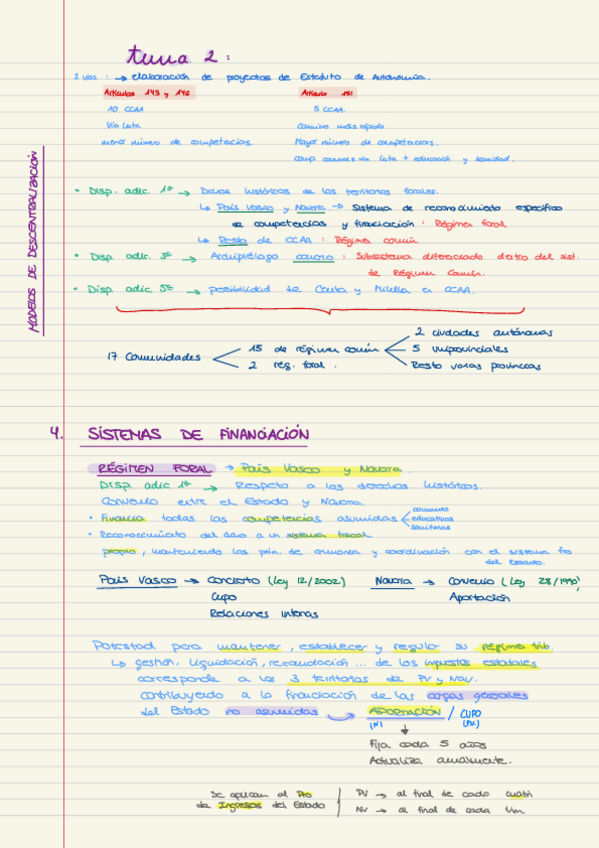 tema 2:
2 vías: → elaboración de proyectos de Estatuto de Autonomía.
Artículos 143 y 146
Artículo 151
10 CCAA
5 CCAA
Vía lenta
Camino más rápido
menor número de competencias
Mayor número de competencias.
comp comunes vía lenta + educación y sanidad.
MODELOS DE DESCENTRALIZACIÓN
• Disp. adic. 1ª → Dchos históricos de los territorios forales.
↳ País Vasco y Navarra → Sistema de reconocimiento específico
de competencias y financiación: Régimen foral
↳ Resto de CCAA: Régimen común
• Disp. adic. 3ª → Archipiélago canario: Subsistema diferenciado dentro del sist.
de Régimen Común.
• Disp. adic 5ª → posibilidad de Ceuta y Melilla en CCAA.
17 Comunidades
15 de régimen común
2 reg. foral.
2 ciudades autónomas
5 uniprovinciales
Resto varias provincias
4. SISTEMAS DE FINANCIACIÓN
RÉGIMEN FORAL → País Vasco y Navarra.
Disp. adic 1ª → Respeto a los derechos históricos.
Convenio entre el Estado y Navarra
• Financia todas las competencias asumidas
comunes
educativas
sanitarias
• Reconocimiento del dcho a un sistema fiscal
propio, manteniendo los prin. de armonia y coordinación con el sistema
del Estado.
País Vasco → Concierto (Ley 12/2002)
Navarra → Convenio (Ley 28/1990)
Cupo
Aportación
Relaciones internas
Potestad para mantener, establecer y regular su régimen trib.
↳ gestión, liquidación, recaudación... de los impuestos estatales
corresponde a los 3 territorios de PV y Nav.
contribuyendo a la financiación de las cargas generales
del Estado no asumidas
APORTACIÓN / CUPO
(N) (PV)
Fija cada 5 años
Actualiza anualmente.
Se aplican al Pro
de Ingresos del Estado
PV → al final de cada cuatri
Nv → al final de cada trim